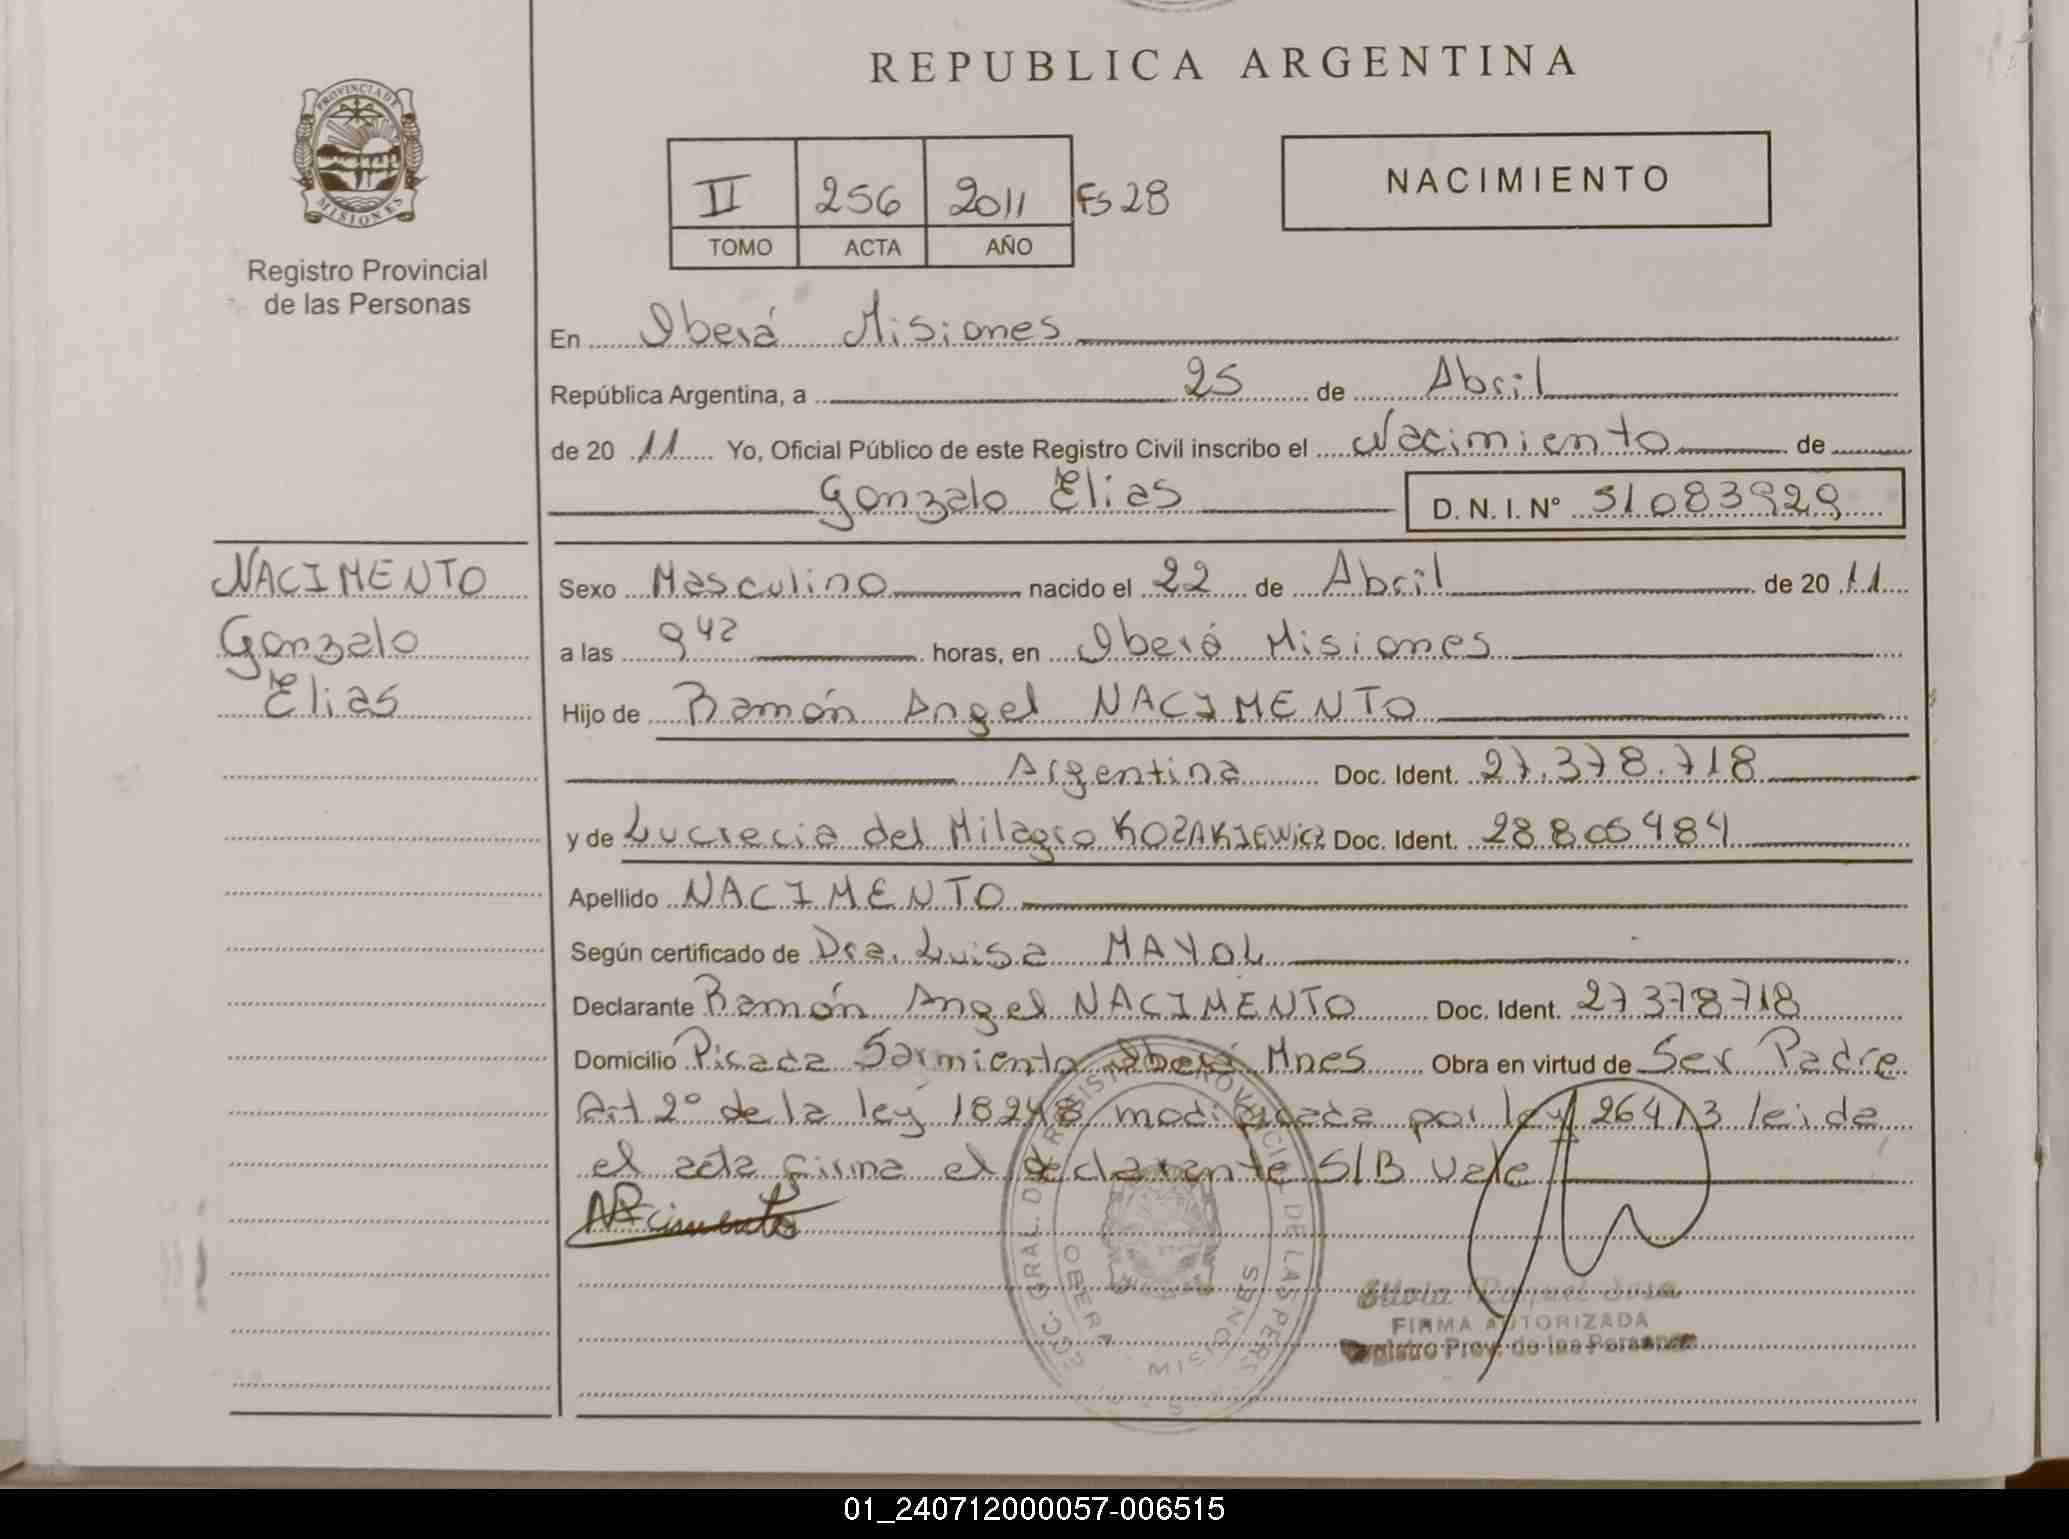 REPUBLICA ARGENTINA
PROVINCIA DE
MISIONES
Registro Provincial
de las Personas
II 256 2011 Fs 28
TOMO ACTA AÑO
NACIMIENTO
En Oberá Misiones
República Argentina, a 25 de Abril
de 20 11 Yo, Oficial Público de este Registro Civil inscribo el Nacimiento de
Gonzalo Elias D. N. I. N° 51083929
NACIMENTO
Gonzalo
Elias
Sexo Masculino nacido el 22 de Abril de 20 11
a las 9 42 horas, en Oberá Misiones
Hijo de Ramón Angel NACIMENTO
Argentina Doc. Ident. 27.378.718
y de Lucrecia del Milagro KOZAKIEWICZ Doc. Ident. 28805484
Apellido NACIMENTO
Según certificado de Dra. Luisa MAYOL
Declarante Ramón Angel NACIMENTO Doc. Ident. 27378718
Domicilio Picada Sarmiento Oberá Mnes Obra en virtud de Ser Padre
Art 2° de la ley 18248 modificada por ley 26413 leida
el acta firma el declarante S/B Vale
Nacimento
Raquel Sosa
FIRMA AUTORIZADA
Registro Prov. de las Personas
GRAL. DEL REGISTRO PROVINCIAL DE LAS PERS
OBERA MISIONES
01_240712000057-006515